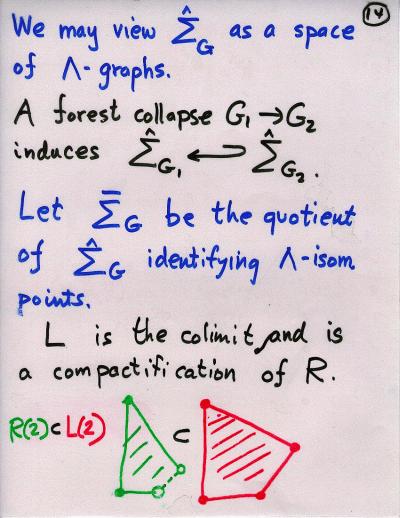 14
We may view Σ̂_G as a space
of Λ-graphs.
A forest collapse G₁ → G₂
induces Σ̂_G₁ ↩ Σ̂_G₂.
Let Σ̄_G be the quotient
of Σ̂_G identifying Λ-isom
points.
L is the colimit, and is
a compactification of R.
R(2) ⊂ L(2) ⊂